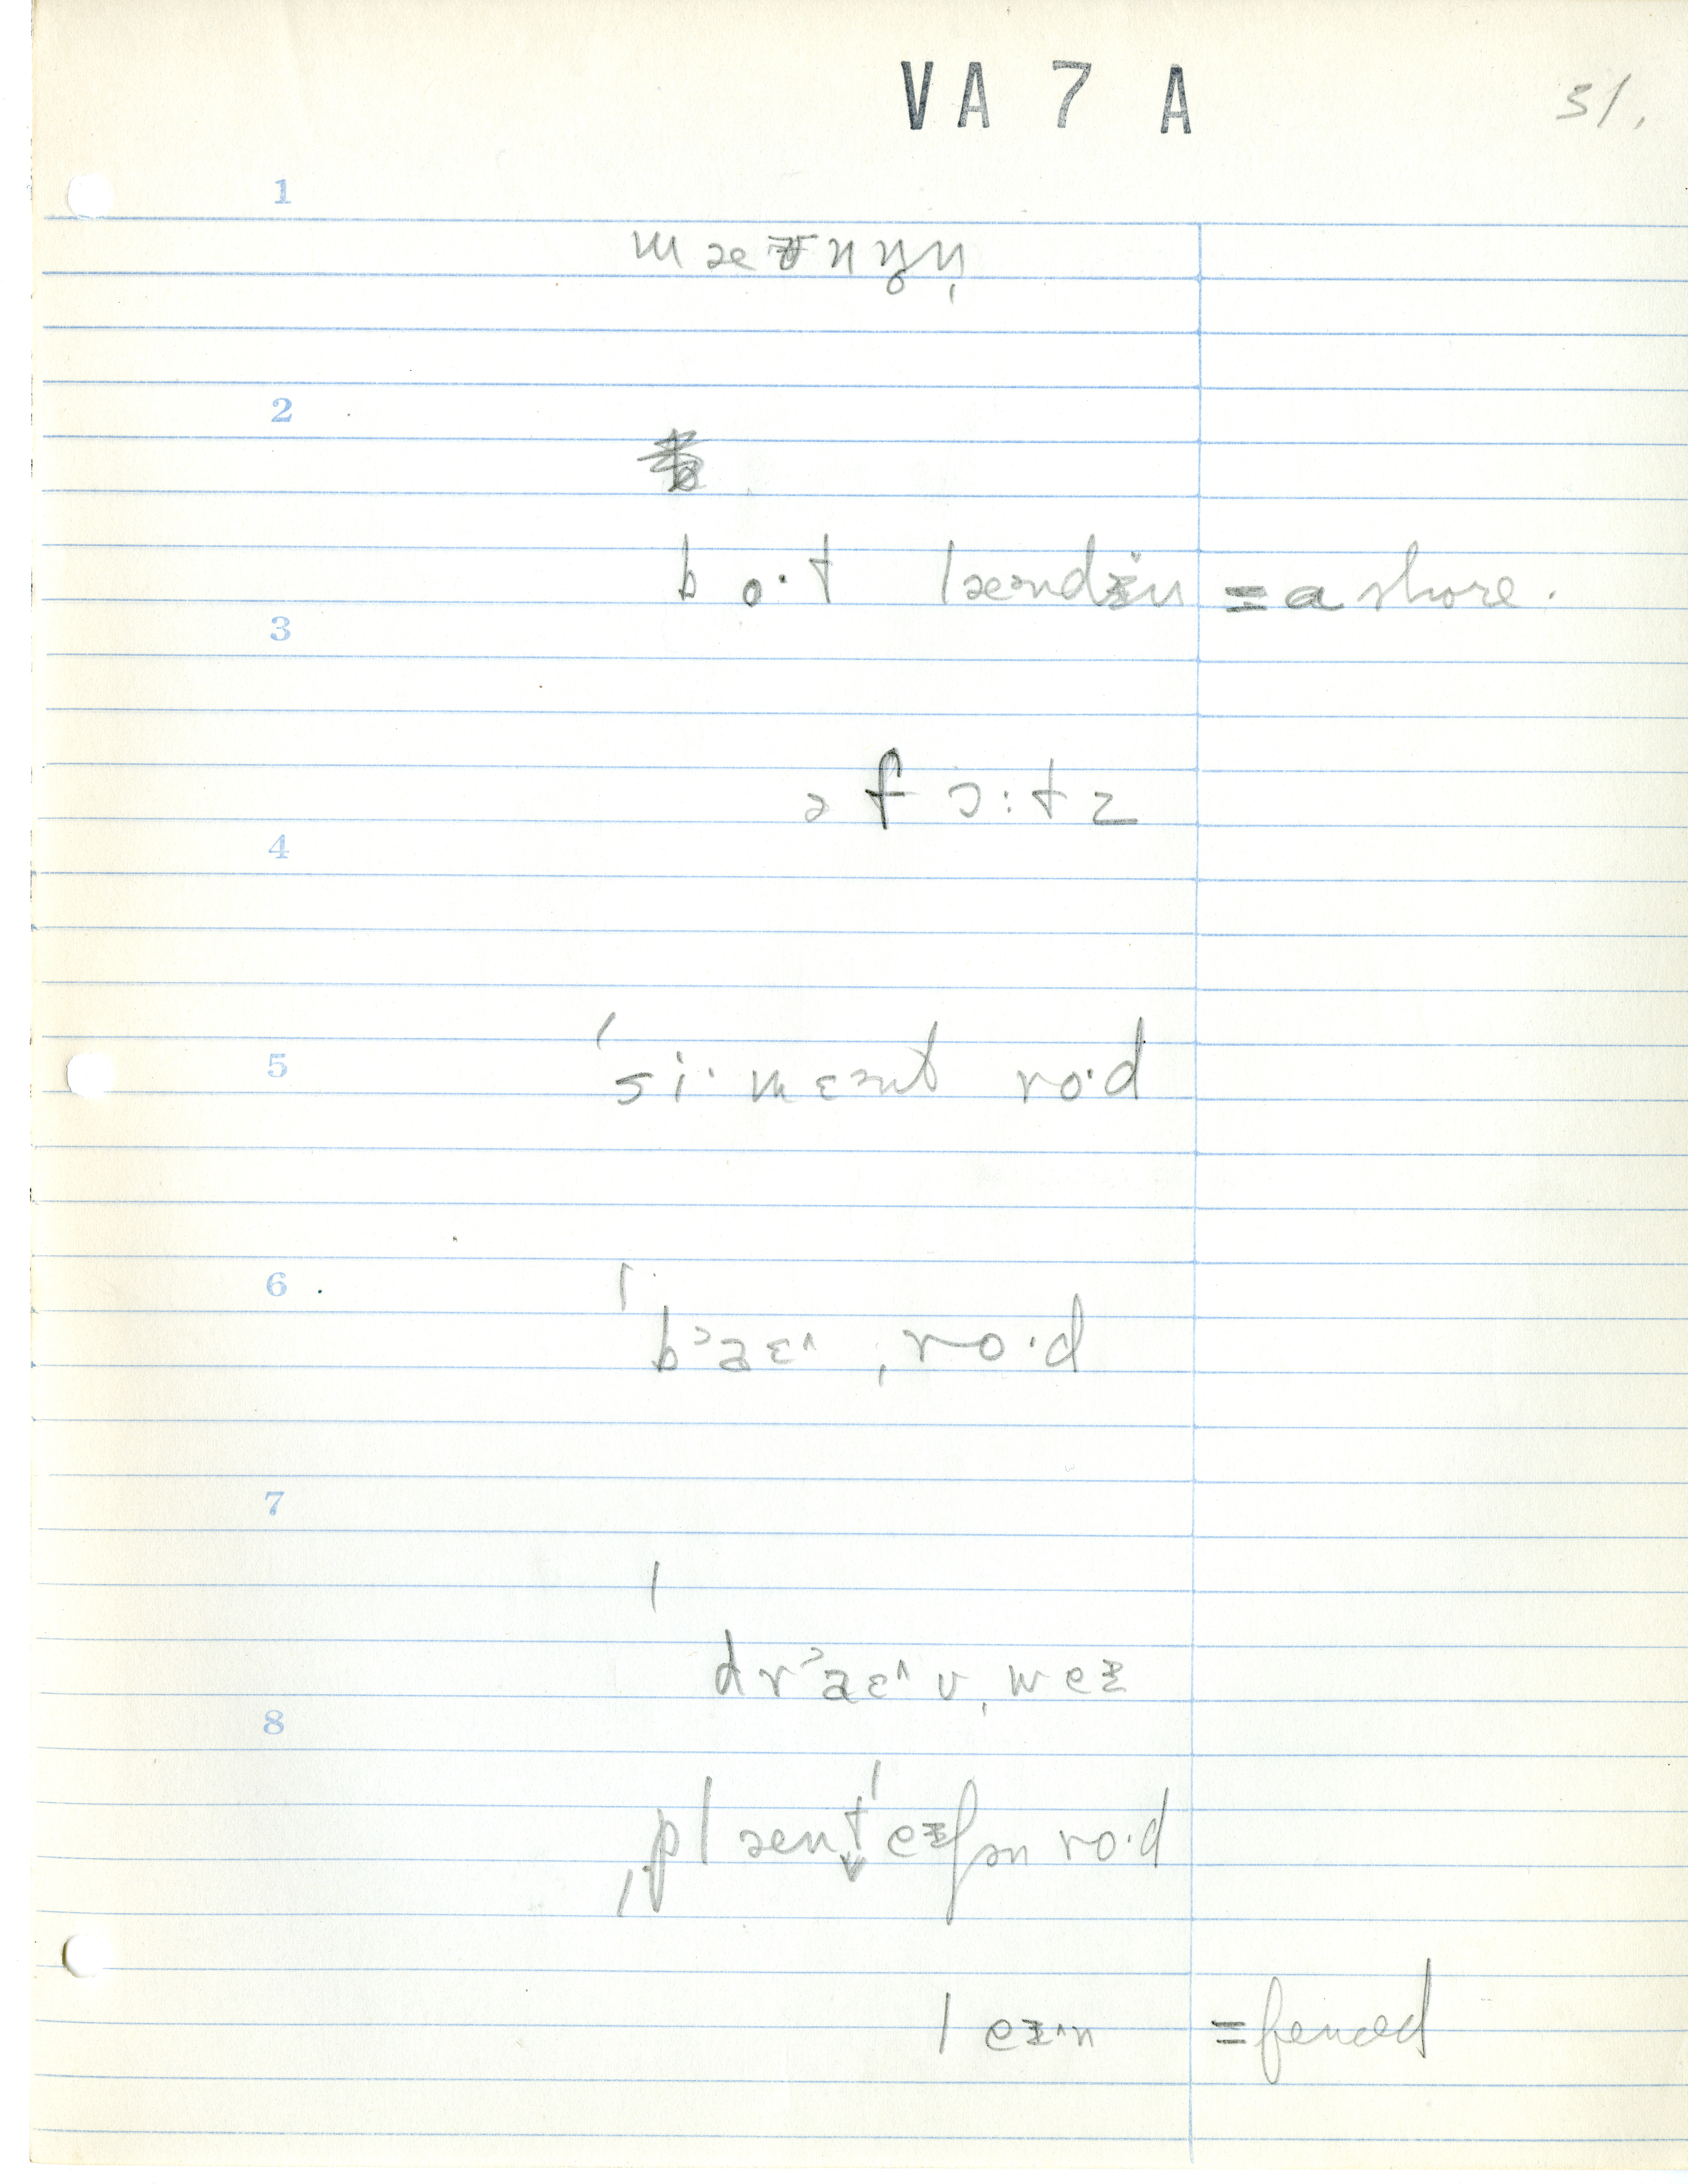 VA 7 A
31.
1
2
bo·t lændɨn = a shore.
3
əf ɔ:t s
4
5
ˈsi·mɛənt ro·d
6
ˈbᵓaɛ^ ˌro·d
7
ˈdrᵓaɛ^v ˌweɪ
8
ˌplænˈteɪʃən ro·d
leɪ^n = fenced